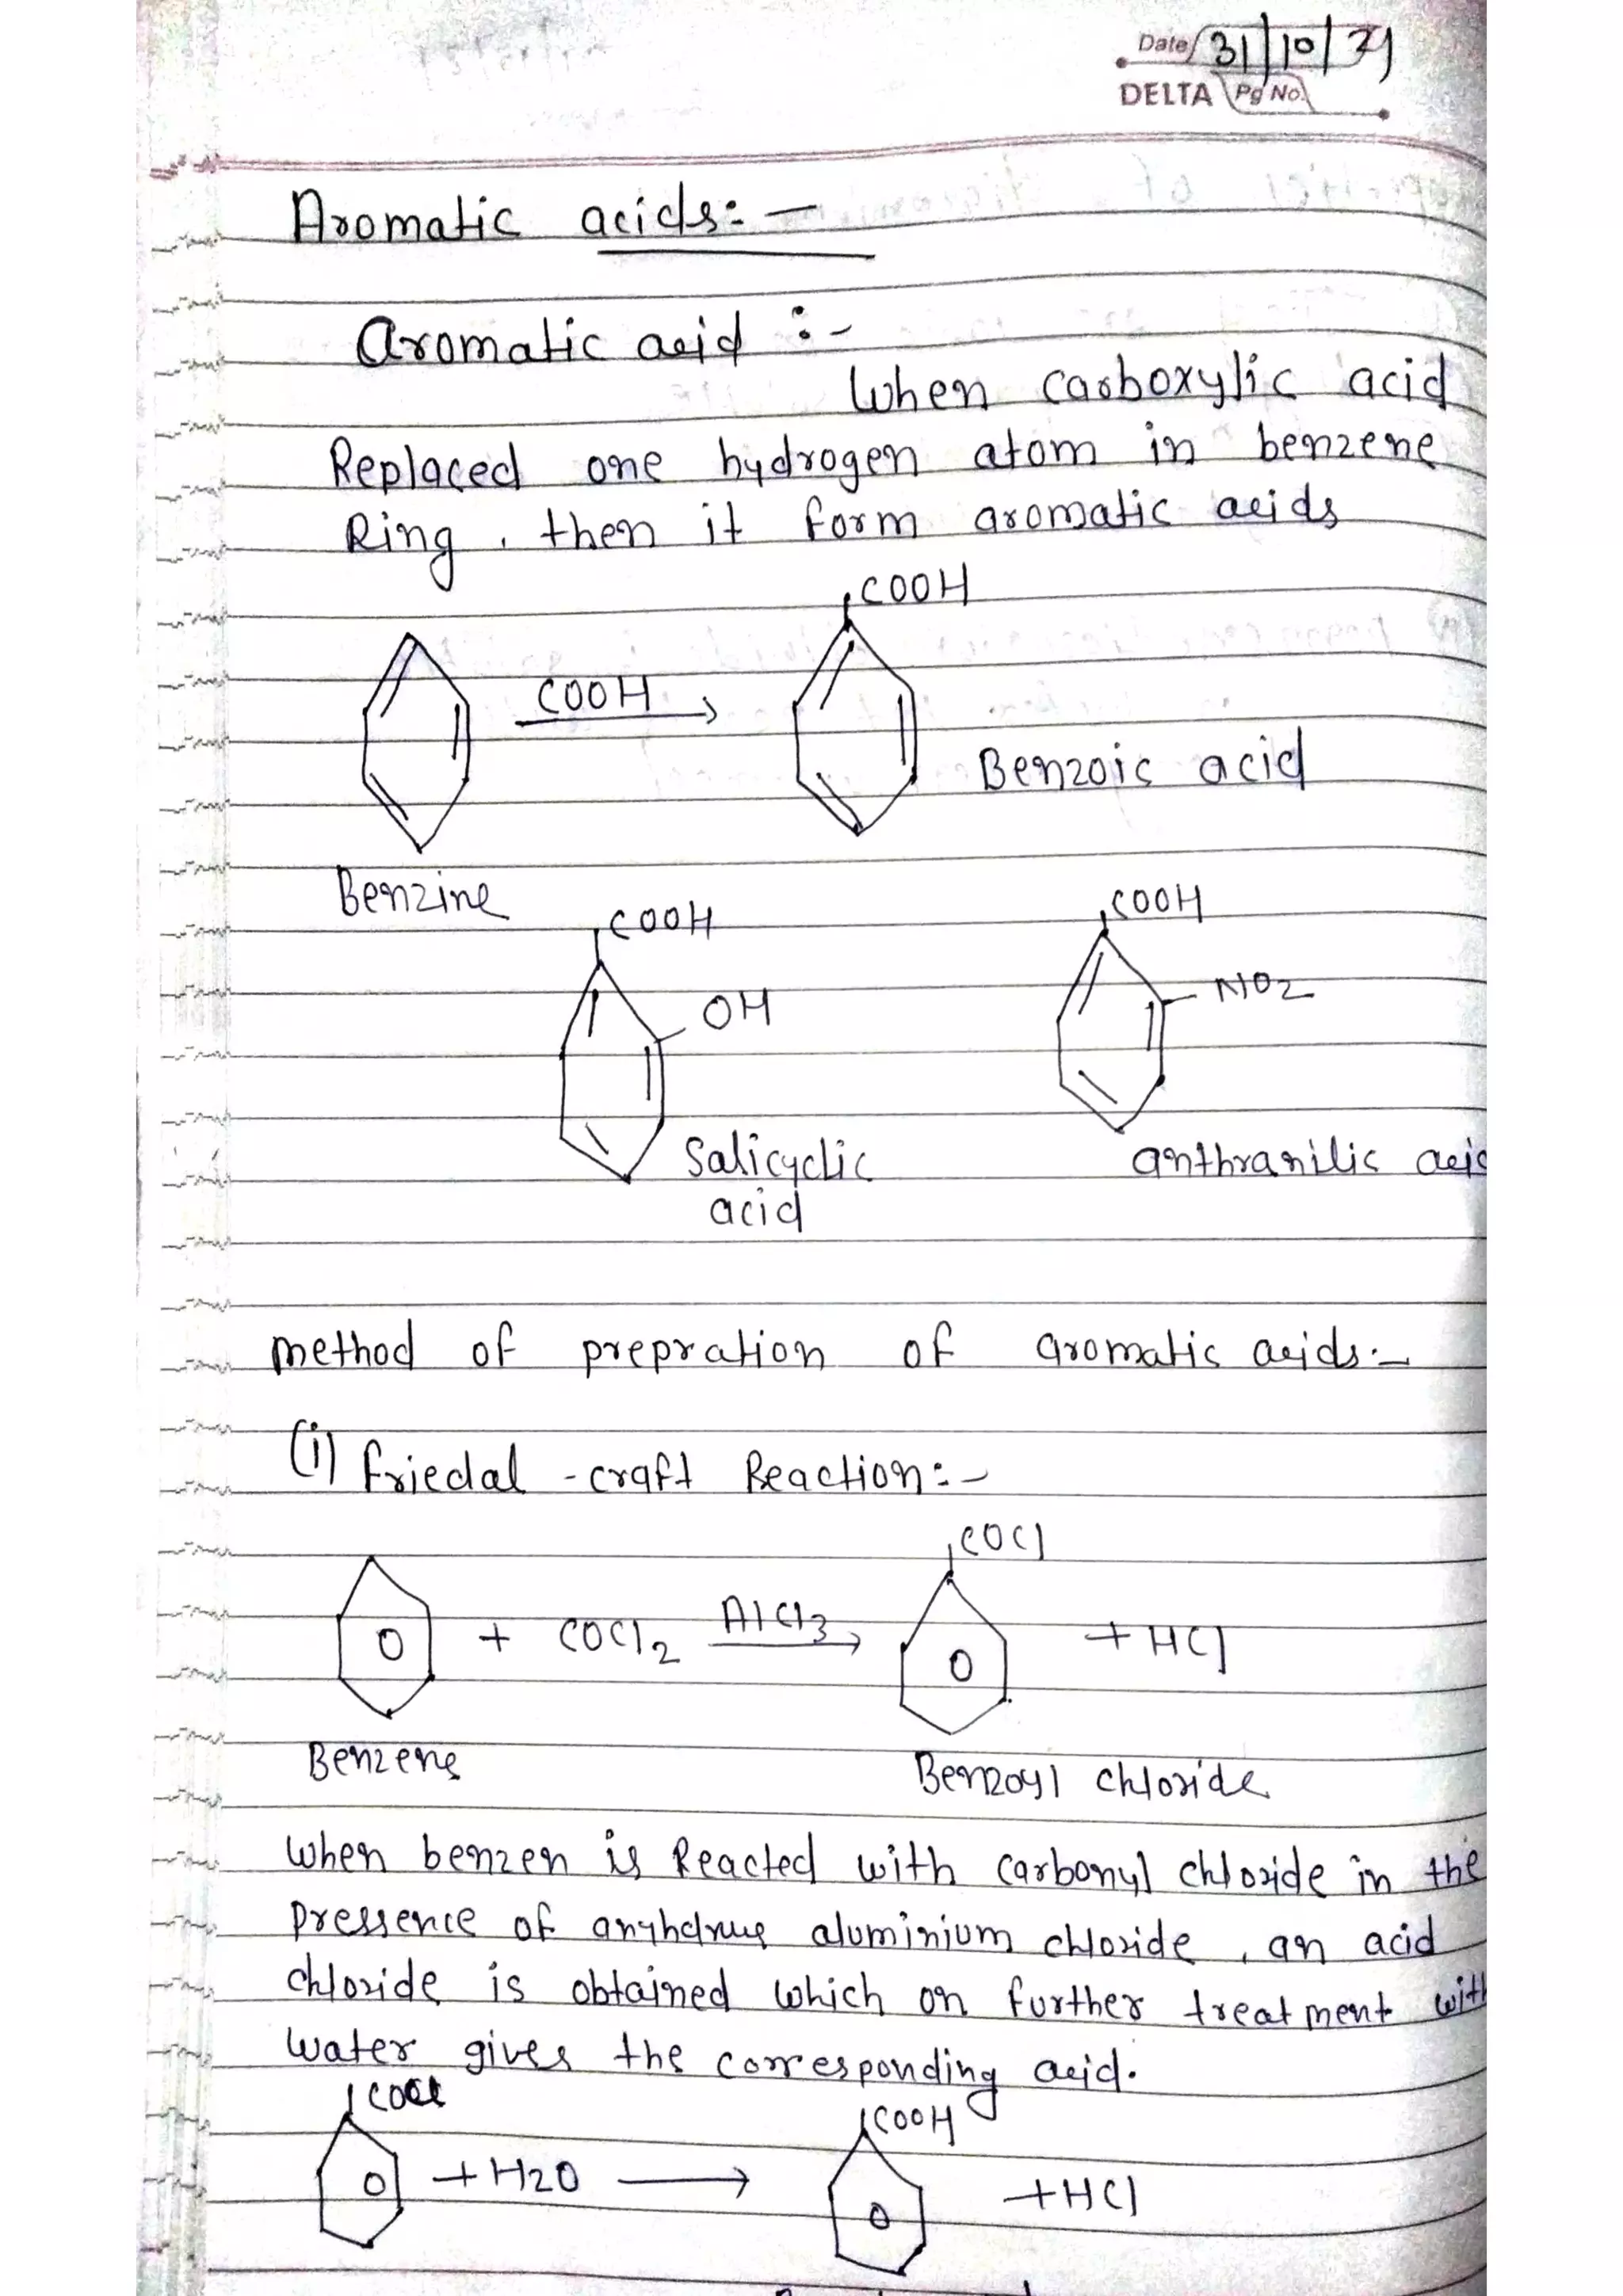 Date 31/10/21
DELTA Pg No.
Aromatic acids:-
Aromatic acid :-
When carboxylic acid
Replaced one hydrogen atom in benzene
Ring, then it form aromatic acids
COOH
COOH
Benzoic acid
Benzine
COOH COOH
OH NO2
Salicyclic anthranilic acid
acid
method of prepration of aromatic acids:-
(i) Friedal -craft Reaction:-
COCl
+ COCl2 AlCl3 + HCl
Benzene Benzoyl chloride
When benzen is Reacted with carbonyl chloride in the
pressence of anyhdrus aluminium chloride, an acid
chloride is obtained which on further treatment with
water gives the corresponding acid.
COCl COOH
+ H2O +HCl